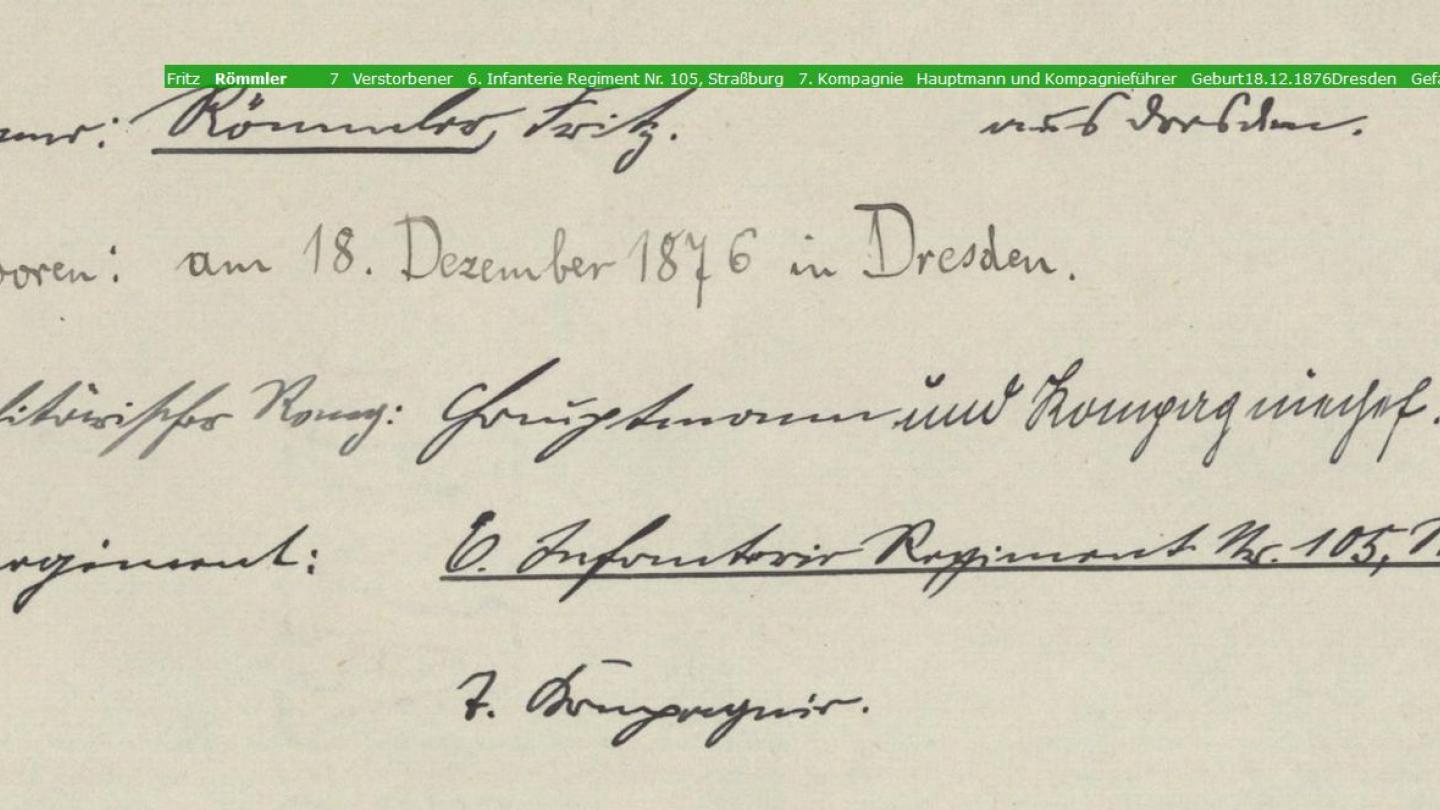 Fritz Römmler 7 Verstorbener 6. Infanterie Regiment Nr. 105, Straßburg 7. Kompagnie Hauptmann und Kompagnieführer Geburt18.12.1876Dresden Gefa
ame: Römmler, Fritz. aus Dresden.
boren: am 18. Dezember 1876 in Dresden.
litärischer Rang: Hauptmann und Kompagniechef.
egiment: 6. Infanterie Regiment Nr. 105,
7. Kompagnie.